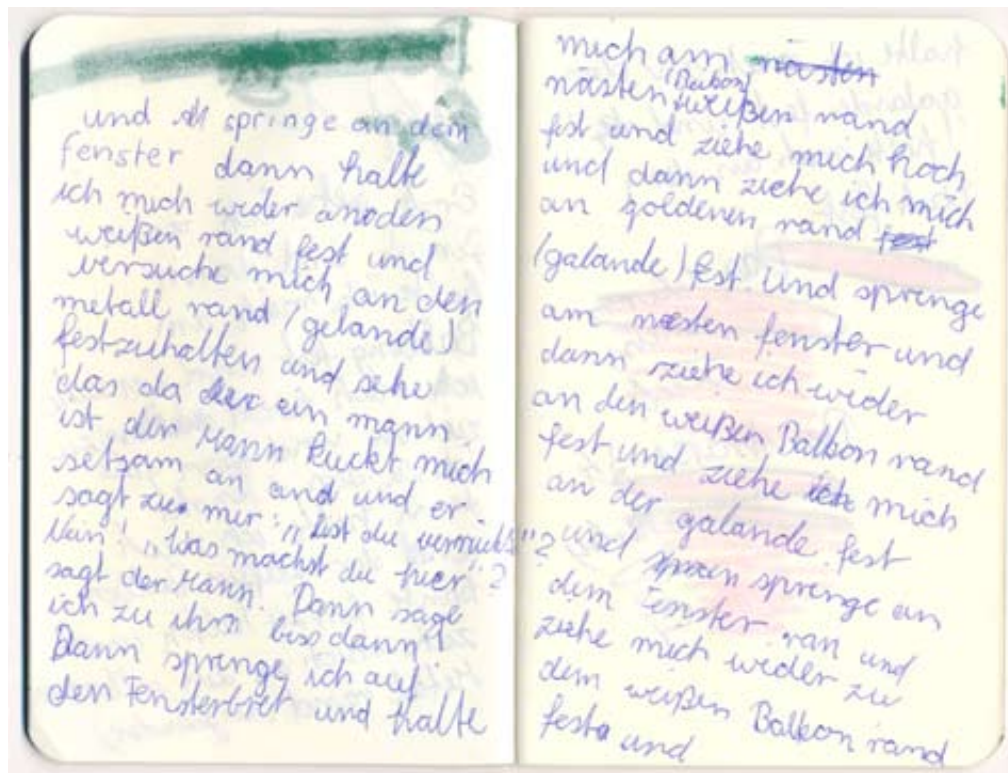 und springe an dem
fenster dann halte
ich mich wider an den
weißen rand fest und
versuche mich an den
metall rand (gelande)
festzuhalten und sehe
das da ein mann
ist der Mann kuckt mich
seltsam an und und er
sagt zu mir: „bist du verrückt"?
Nein! „Was machst du hier"?
sagt der Mann. Dann sage
ich zu ihm biss dann!
Dann sprenge ich auf
den Fensterbret und halte
mich am nästen
nästen (Balkon) weißen rand
fest und ziehe mich hoch
und dann ziehe ich mich
an goldenen rand fest
(galande) fest. Und sprenge
am nästen fenster und
dann ziehe ich wider
an den weißen Balkon rand
fest und ziehe ich mich
an der galande fest
und sprenge an
dem Fenster ran und
ziehe mich wider zu
dem weißen Balkon rand
fest und